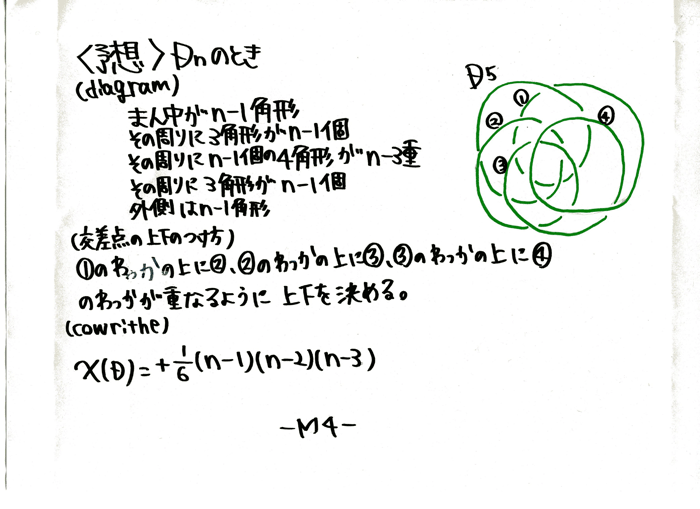 〈予想〉Dnのとき
(diagram)
まん中がn-1角形
その周りに3角形がn-1個
その周りにn-1個の4角形がn-3重
その周りに3角形がn-1個
外側はn-1角形
(交差点の上下のつけ方)
①のわっかの上に②、②のわっかの上に③、③のわっかの上に④
のわっかが重なるように上下を決める。
(cowrithe)
χ(D)=+1/6(n-1)(n-2)(n-3)
-M4-
D5
①
②
④
③